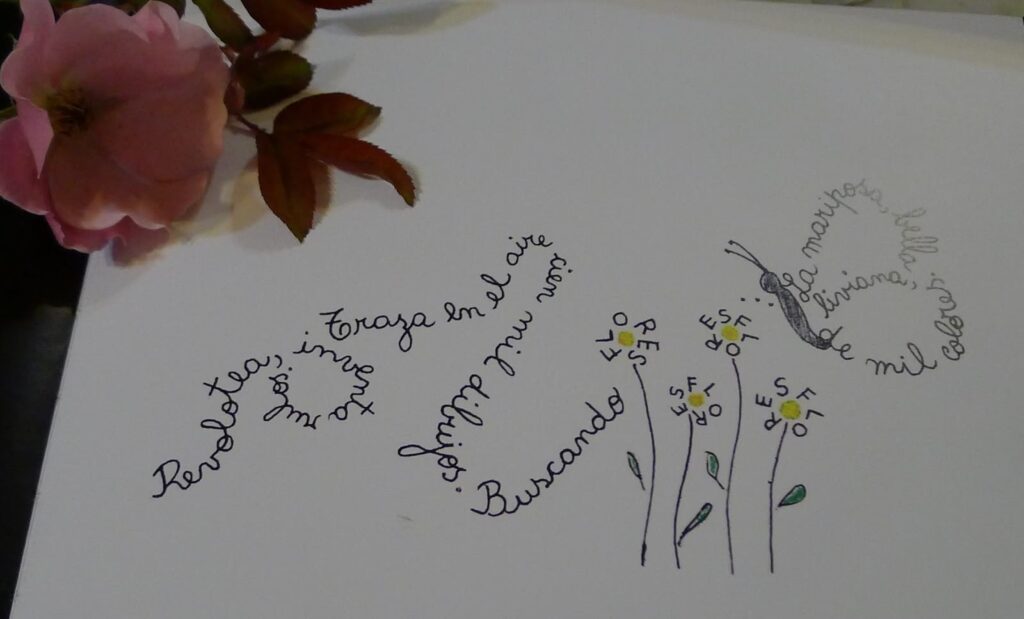 Revolotea,
inventa
rulos,
Traza en el aire
cien mil dibujos.
Buscando
FLORES
FLORES
FLORES
FLORES
La mariposa bella,
liviana,
de mil colores.